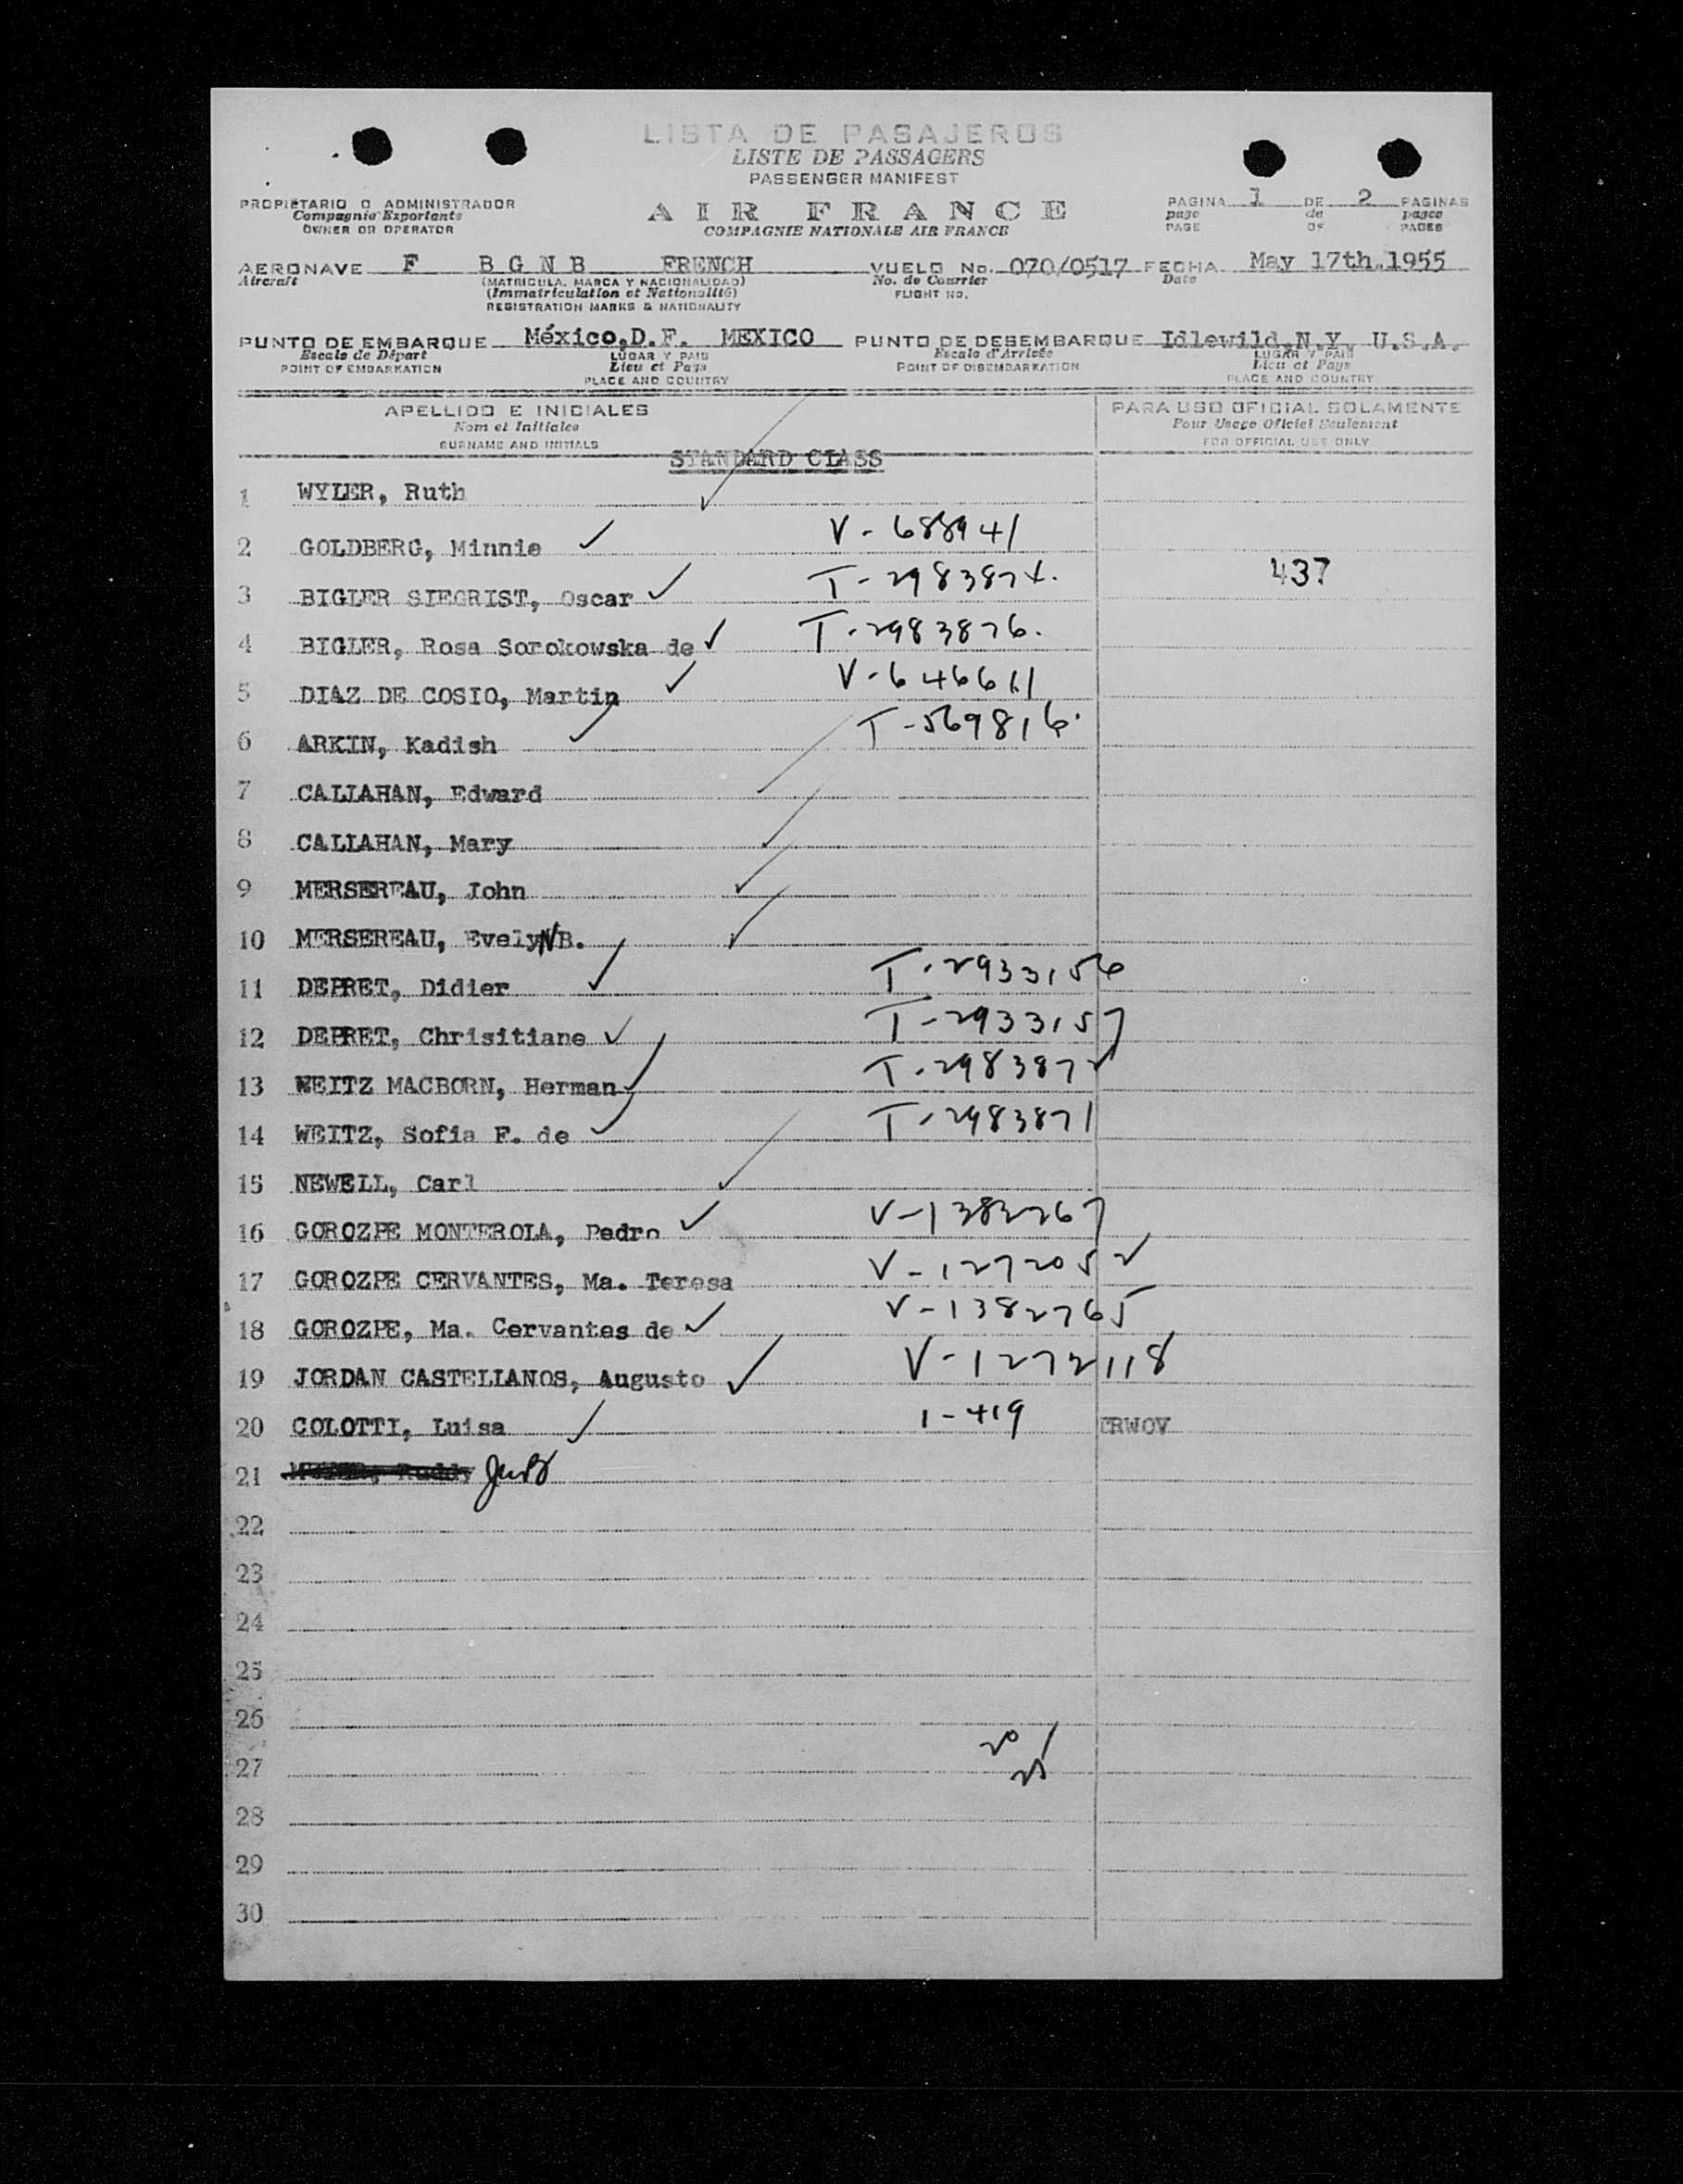 LISTA DE PASAJEROS
LISTE DE PASSAGERS
PASSENGER MANIFEST
PROPIETARIO O ADMINISTRADOR
Compagnie Exportante
OWNER OR OPERATOR
AIR FRANCE
COMPAGNIE NATIONALE AIR FRANCE
PAGINA 1 DE 2 PAGINAS
page de pages
PAGE OF PAGES
AERONAVE F BGNB FRENCH VUELO No. 070/0517 FECHA May 17th.1955
Aircraft (MATRICULA, MARCA Y NACIONALIDAD) No. de Courrier Date
(Immatriculation et Nationalité) FLIGHT NO.
REGISTRATION MARKS & NATIONALITY
PUNTO DE EMBARQUE México,D.F. MEXICO PUNTO DE DESEMBARQUE Idlewild,N.Y. U.S.A.
Escale de Départ LUGAR Y PAIS Escale d'Arrivée LUGAR Y PAIS
POINT OF EMBARKATION Lieu et Pays POINT OF DISEMBARKATION Lieu et Pays
PLACE AND COUNTRY PLACE AND COUNTRY
APELLIDO E INICIALES PARA USO OFICIAL SOLAMENTE
Nom et Initiales Pour Usage Officiel Seulement
SURNAME AND INITIALS FOR OFFICIAL USE ONLY
STANDARD CLASS
1 WYLER, Ruth
2 GOLDBERG, Minnie V-688941
3 BIGLER SIEGRIST, Oscar T-2983874. 437
4 BIGLER, Rosa Sorokowska de T-2983876.
5 DIAZ DE COSIO, Martin V-646611
6 ARKIN, Kadish T-569816.
7 CALLAHAN, Edward
8 CALLAHAN, Mary
9 MERSEREAU, John
10 MERSEREAU, EvelyN B.
11 DEPRET, Didier T-2933156
12 DEPRET, Chrisitiane T-2933157
13 WEITZ MACBORN, Herman T-2983872
14 WEITZ, Sofia F. de T-2983871
15 NEWELL, Carl
16 GOROZPE MONTEROLA, Pedro V-1382267
17 GOROZPE CERVANTES, Ma. Teresa V-1272052
18 GOROZPE, Ma. Cervantes de V-1382765
19 JORDAN CASTELLANOS, Augusto V-1272118
20 COLOTTI, Luisa 1-419 TRWOV
21
22
23
24
25
26
27 20
28
29
30